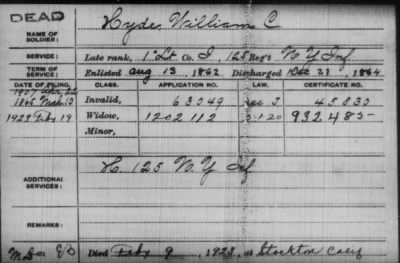 DEAD
NAME OF SOLDIER: Hyde, William C
SERVICE: Late rank, 1" Lt Co. I, 125 Reg't N Y Inf
TERM OF SERVICE: Enlisted Aug 13, 1862 Discharged Dec 21, 1864
DATE OF FILING. CLASS. APPLICATION NO. LAW. CERTIFICATE NO.
1865 Mar 10 Invalid, 63049 45830
1923 Feb 19 Widow, 1202112 5-1-20 932485-
Minor,
ADDITIONAL SERVICES: H. 125 N. Y. Inf
REMARKS:
Died Feby 9, 1923, at Stockton Calif